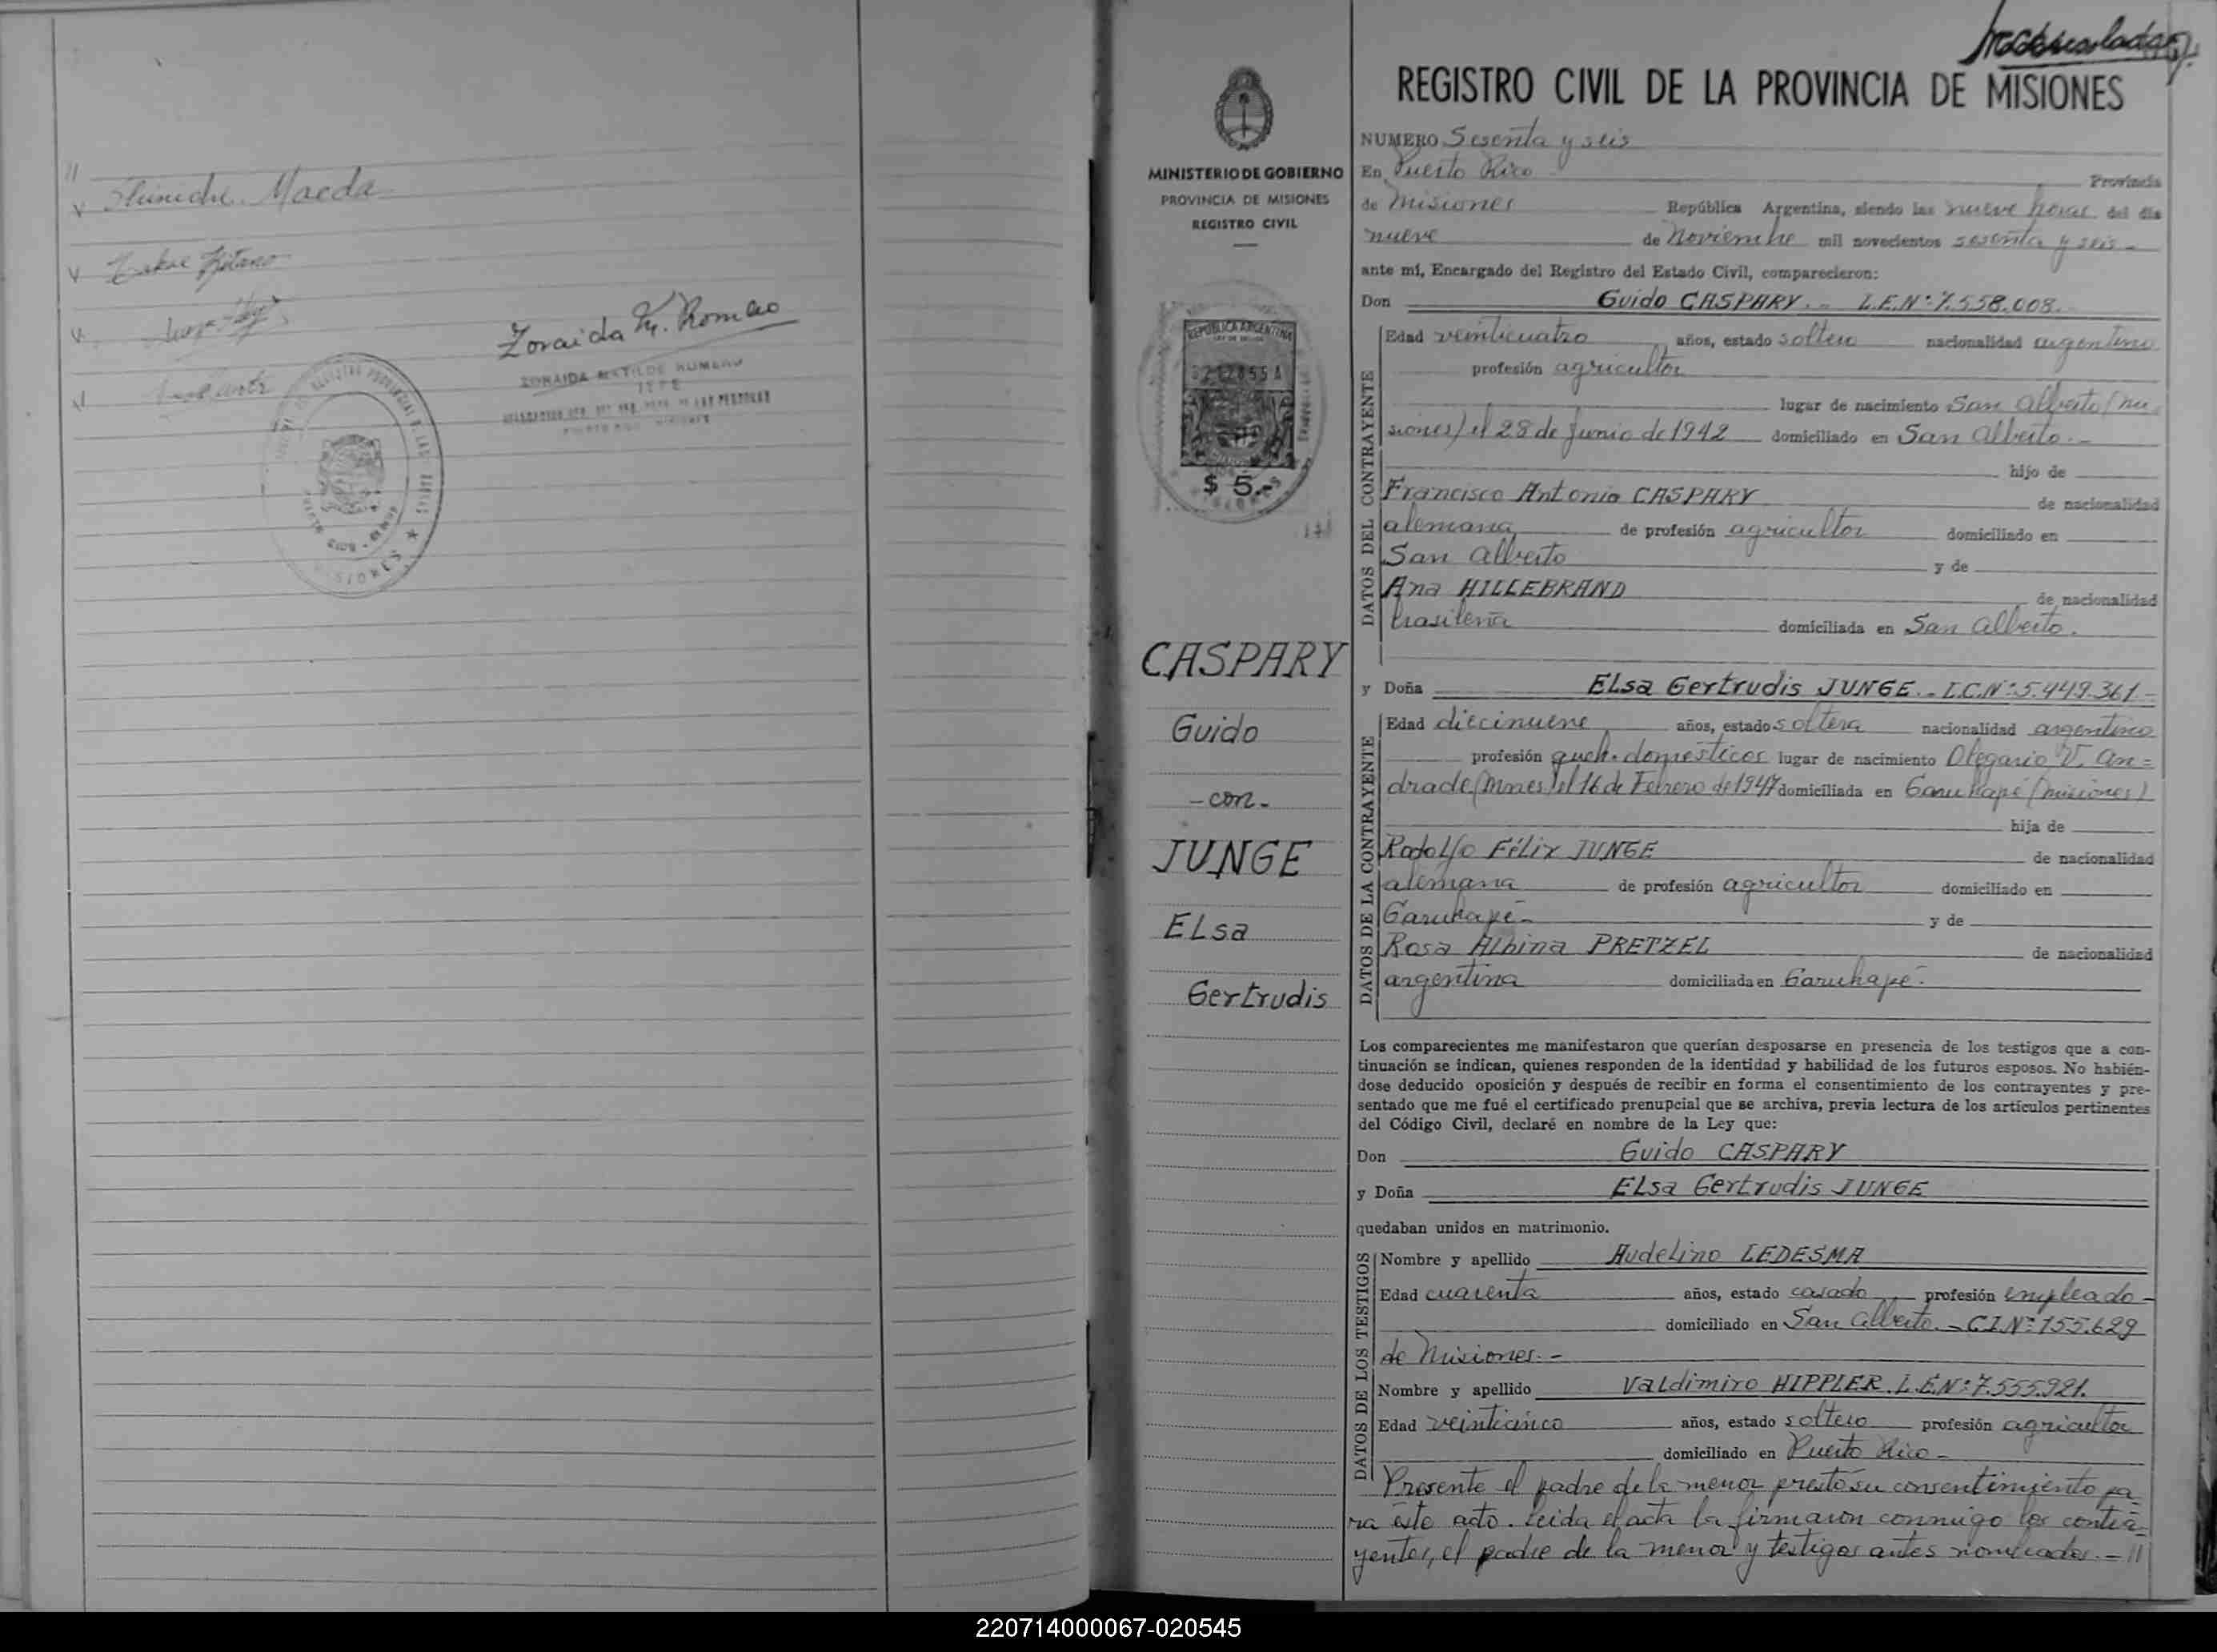 //
Shinichi Maeda
Zoraida M. Romero
ZORAIDA MATILDE ROMERO
JEFE
MISIONES
Inmaculada
MINISTERIO DE GOBIERNO
PROVINCIA DE MISIONES
REGISTRO CIVIL
REPUBLICA ARGENTINA
$ 5.-
CASPARY
Guido
-con-
JUNGE
ELsa
Gertrudis
REGISTRO CIVIL DE LA PROVINCIA DE MISIONES
NUMERO Sesenta y seis
En Puerto Rico Provincia
de Misiones República Argentina, siendo las nueve horas del día
nueve de Noviembre mil novecientos sesenta y seis -
ante mí, Encargado del Registro del Estado Civil, comparecieron:
Don Guido CASPARY. - L.E.Nº:7.558.008.
DATOS DEL CONTRAYENTE
Edad veinticuatro años, estado soltero nacionalidad argentino
profesión agricultor
lugar de nacimiento San Alberto (Mi-
siones) el 28 de Junio de 1942 domiciliado en San Alberto.-
hijo de
Francisco Antonio CASPARY de nacionalidad
alemana de profesión agricultor domiciliado en
San Alberto y de
Ana HILLEBRAND de nacionalidad
brasileña domiciliada en San Alberto.
y Doña ELsa Gertrudis JUNGE.- L.C.Nº:5.449.361-
DATOS DE LA CONTRAYENTE
Edad diecinueve años, estado soltera nacionalidad argentina
profesión queh. domésticos lugar de nacimiento Olegario V. An=
drade (Mnes) el 16 de Febrero de 1947 domiciliada en Garuhapé (Misiones)
hija de
RodoLfo FéLix JUNGE de nacionalidad
alemana de profesión agricultor domiciliado en
Garuhapé- y de
Rosa ALbina PRETZEL de nacionalidad
argentina domiciliada en Garuhapé.-
Los comparecientes me manifestaron que querían desposarse en presencia de los testigos que a con-
tinuación se indican, quienes responden de la identidad y habilidad de los futuros esposos. No habién-
dose deducido oposición y después de recibir en forma el consentimiento de los contrayentes y pre-
sentado que me fué el certificado prenupcial que se archiva, previa lectura de los artículos pertinentes
del Código Civil, declaré en nombre de la Ley que:
Don Guido CASPARY
y Doña ELsa Gertrudis JUNGE
quedaban unidos en matrimonio.
DATOS DE LOS TESTIGOS
Nombre y apellido AudeLino LEDESMA
Edad cuarenta años, estado casado profesión empleado-
domiciliado en San Alberto.- C.I.Nº:155.629
de Misiones.-
Nombre y apellido VaLdimiro HIPPLER. L.E.Nº:7.555.921.
Edad veinticinco años, estado soltero profesión agricultor
domiciliado en Puerto Rico-
Presente el padre de la menor prestó su consentimiento pa-
ra éste acto. Leida el acta la firmaron conmigo los contra-
yentes, el padre de la menor y testigos antes nombrados.- //
220714000067-020545